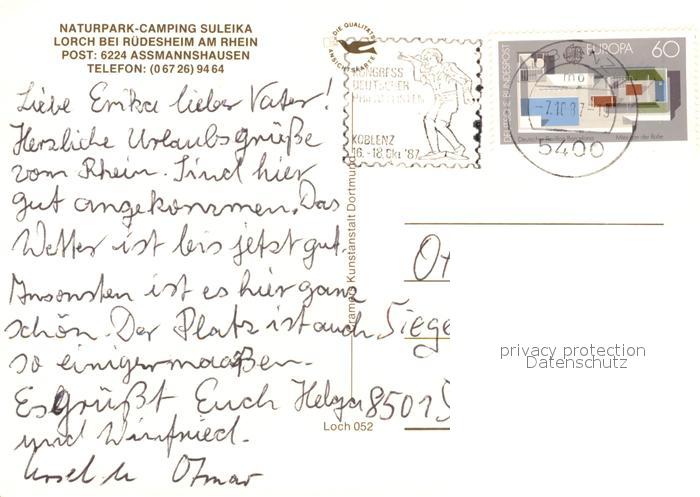 NATURPARK-CAMPING SULEIKA
LORCH BEI RÜDESHEIM AM RHEIN
POST: 6224 ASSMANNSHAUSEN
TELEFON: (0 67 26) 94 64
DIE QUALITÄTS
ANSICHTSKARTE
KONGRESS
DEUTSCHER
KOBLENZ
16.-18. Okt '87
DEUTSCHE BUNDESPOST
EUROPA 60
5400
Liebe Erika lieber Vater!
Herzliche Urlaubsgrüße
vom Rhein. Sind hier
gut angekommen. Das
Wetter ist bis jetzt gut.
Ansonsten ist es hier ganz
schön. Der Platz ist auch
so einigermaaßen.
Es grüßt Euch Helga
und Winfried.
Otmar
Kunstanstalt Dortmund
Loch 052
Ot
Siege
8501
privacy protection
Datenschutz